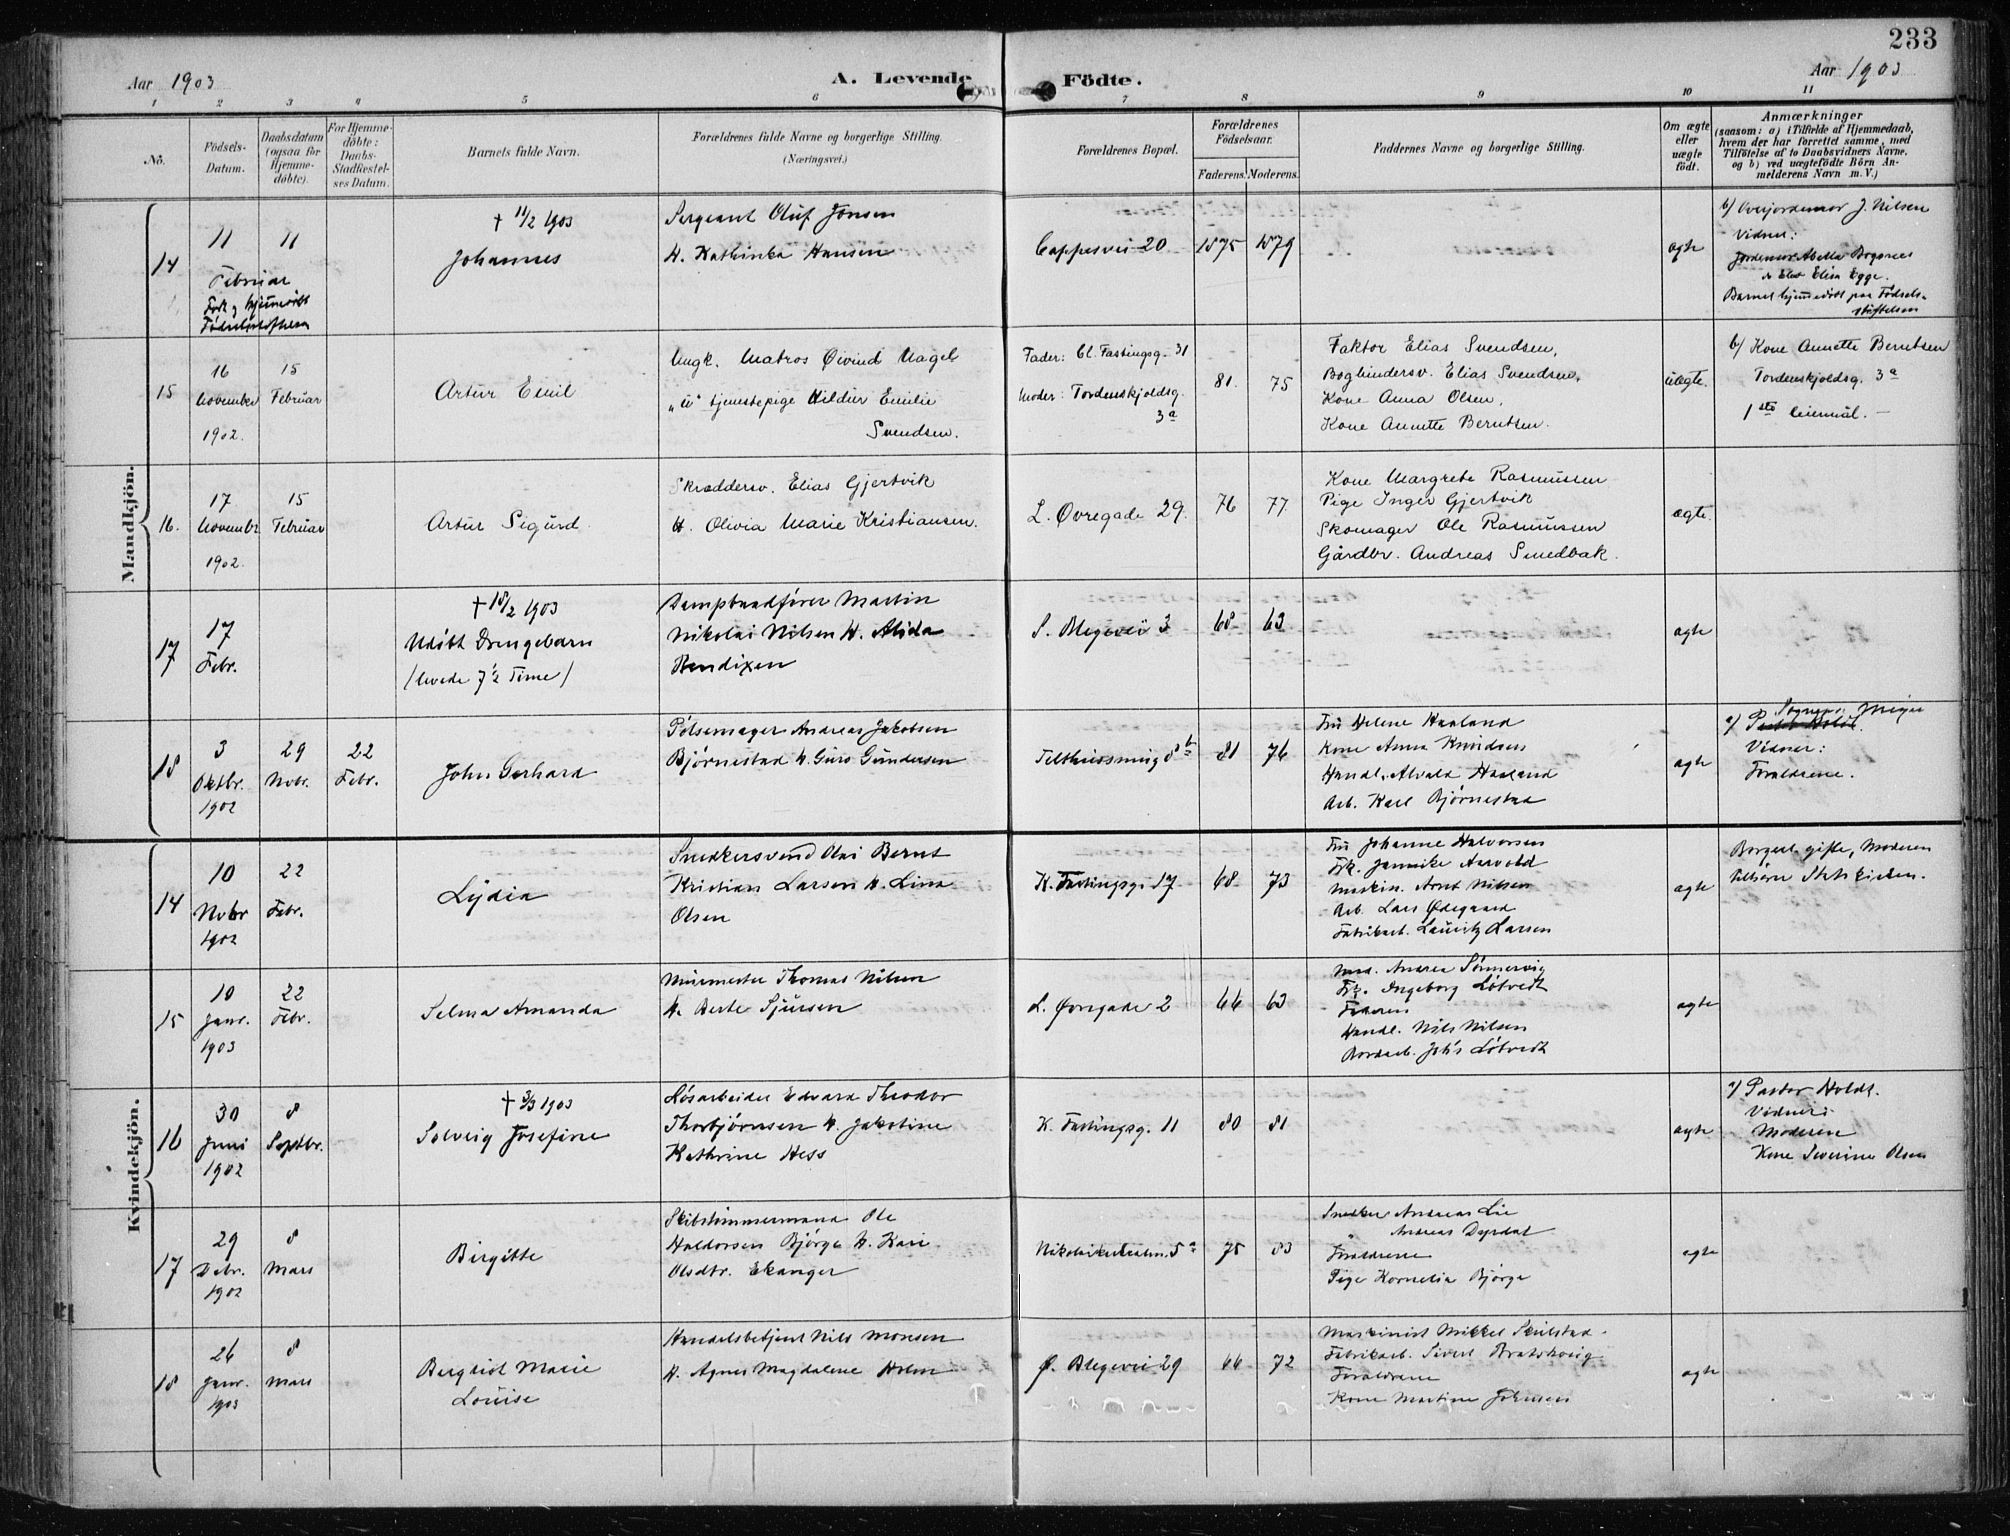 233
Aar 1903
A. Levende Födte.
Aar 1903
1 2 3 4 5 6 7 8 9 10 11
No.
Födsels-Datum.
Daabsdatum (ogsaa for Hjemme-döbte).
For Hjemme-döbte: Daabs-Stadfæstel-ses Datum.
Barnets fulde Navn.
Forældrenes fulde Navne og borgerlige Stilling.
(Næringsvei.)
Forældrenes Bopæl.
Forældrenes Födselsaar.
Faderens. Moderens.
Faddernes Navne og borgerlige Stilling.
Om ægte eller uægte födt.
Anmærkninger
(saasom: a) i Tilfælde af Hjemmedaab,
hvem der har forrettet samme, med
Tilföielse af to Daabsvidners Navne,
og b) ved uægtefödte Börn An-
melderens Navn m. V.)
Mandkjön.
14
11
Februar
Født og hjemmedöbt
Fødselsstiftelsen
11
+ 11/2 1903
Johannes
Sergeant Oluf Jonsen
H. Kathinka Hansen
Cappesvei 20
1875
1879
ægte
b/ Overjordemor J. Nilsen
Vidner:
Jordemor Abella Bogsnes
& Elev Elisa Egge.
Barnet hjemmedöbt paa Fødsels-
stiftelsen
15
16
November
1902.
15
Februar
Artur Emil
Ungk. Matros Øivind Nagel
"u" tjenestepige Hildur Emilie
Svendsen.
Fader: Cl. Fastingsg. 31
Moder: Tordenskjoldsg.
3a
81.
75
Faktor Elias Svendsen,
Bogbindersv. Elias Svendsen,
Kone Anna Olsen,
Kone Annette Berntsen.
uægte.
b/ Kone Annette Berntsen
Tordenskjoldsg. 3a
1ste leiermål. -
16.
17
Novembr
1902.
15
Februar
Artur Sigurd.
Skræddersv. Elias Gjertvik
H. Olivia Marie Kristiansen.
L. Øvregade 29.
76
77
Kone Margrete Rasmussen
Pige Inger Gjertvik
Skomager Ole Rasmussen
Gårdbr. Andreas Smedbak.
ægte.
17
17
Febr.
+ 18/2 1903
Udöbt Drengebarn
/levede 7½ Time/
Dampbaadfører Martin
Nikolai Nilsen H. Alida
Bendixen
S. Blegevei 3
68
63
ægte
18
3
Oktbr.
1902
29
Novbr.
22
Febr.
John Gerhard
Pølsemager Andreas Jakobsen
Bjørnestad H. Guro Gundersen
81
76
Fru Helene Haaland
Kone Anna Knudsen
Handl. Alvald Haaland
Arb. Karl Bjørnestad
ægte
a/ Pastor Holdt.
Vidner:
Forældrene.
Kvindekjön.
14
10
Novbr
1902
22
Febr.
Lydia
Snedkersvend Olai Bernt
Kristian Larsen H. Lina
Olsen
K. Fastingsg. 17
68
73
Fru Johanne Halvorsen
Frk. Jannike Aarvold
Maskin. Arnt Nilsen
Arb. Lars Ødegaard
Fabrikarb. Lauritz Larsen
ægte
Borgerl. gifte, Moderen
tilhører Statskirken.
15
10
Janr.
1903
22
Febr.
Selma Amanda
Murmester Thomas Nilsen
H. Berte Sjursen
L. Øvregade 2
66
63
Frk. Ingeborg Løtvedt
Faderen
Handl. Nils Nilsen
Johs Løtvedt
ægte
16
30
Juni
1902
8
Septbr.
+ 3/3 1903
Solveig Josefine
Løsarbeider Edvard Theodor
Thorbjørnsen H. Jakobine
Kathrine Hess
K. Fastingsg. 11
80
81
ægte
a/ Pastor Holdt.
Vidner:
Moderen
Kone Severine Olsen
17
29
Debr.
1902
8
Mars
Birgitte
Skibstømmermand Ole
Haldorsen Bjørge H. Kari
Olsdtr. Ekanger
75
83
Snedker Andreas Lie
" Andreas Dyrdal
Forældrene
Pige Kornelia Bjørge
ægte
18
26
Janr.
1903
8
Mars
Bergliot Marie
Louise
Handelsbetjent Nils Monsen
H. Agnes Magdalene Holm
Ø. Blegevei 29
66
72
Maskinist Mikkel Skulstad.
Fabrikarb. Sivert Bratskreig
Forældrene
Kone Martine Johnsen
ægte